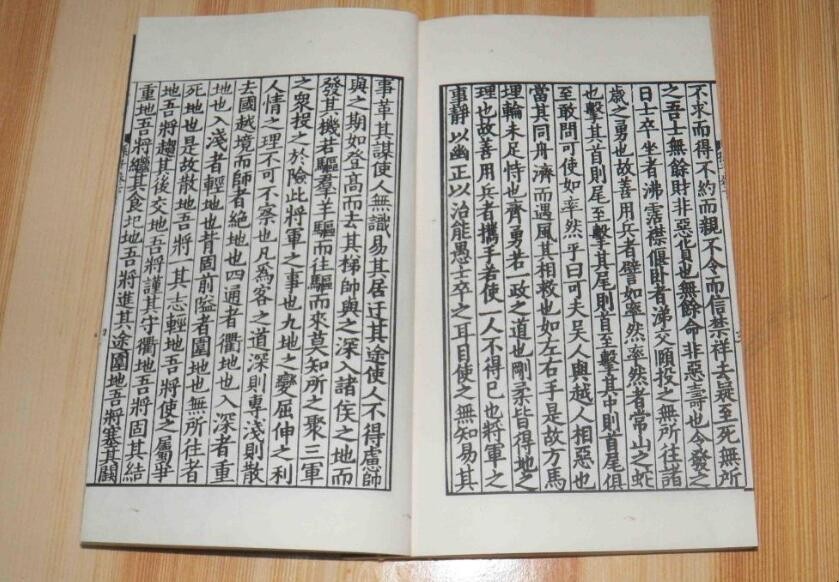 不求而得不約而親不令而信禁祥去疑至死無所
之吾士無餘財非惡貨也無餘命非惡壽也令發之
日士卒坐者涕霑襟偃臥者涕交頤投之無所往諸
歲之勇也故善用兵者譬如率然率然者常山之蛇
也擊其首則尾至擊其尾則首至擊其中則首尾俱
至敢問可使如率然乎曰可夫吳人與越人相惡也
當其同舟濟而遇風其相救也如左右手是故方馬
埋輪未足恃也齊勇若一政之道也剛柔皆得地之
理也故善用兵者攜手若使一人不得已也將軍之
事靜以幽正以治能愚士卒之耳目使之無知易其
事革其謀使人無識易其居迂其途使人不得慮帥
與之期如登高而去其梯帥與之深入諸侯之地而
發其機若驅羣羊驅而往驅而來莫知所之聚三軍
之衆投之於險此將軍之事也九地之變屈伸之利
人情之理不可不察也凡為客之道深則專淺則散
去國越境而師者絕地也四通者衢地也入深者重
地也入淺者輕地也背固前隘者圍地也無所往者
死地也是故散地吾將 其志輕地吾將使之屬爭
地吾將趨其後交地吾將謹其守衢地吾將固其結
重地吾將繼其食圮地吾將進其途圍地吾將塞其闕